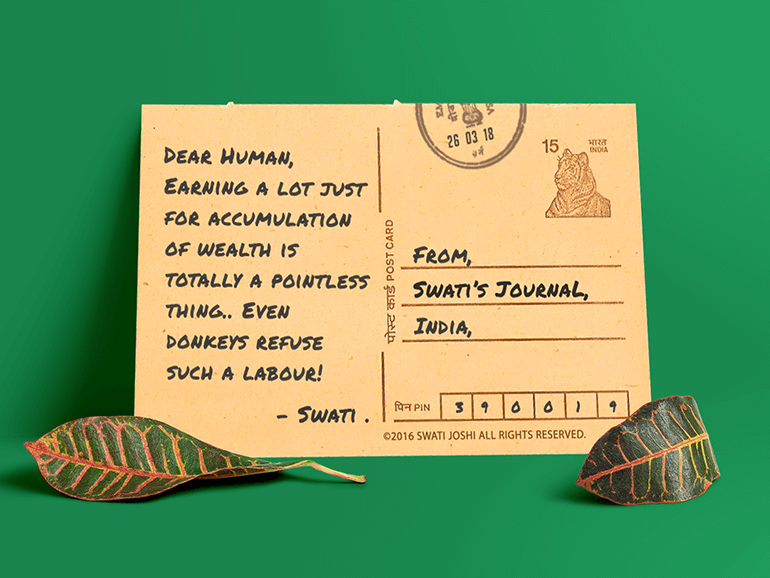 Dear Human,
Earning a lot just
for accumulation
of wealth is
totally a pointless
thing.. Even
donkeys refuse
such a labour!
- Swati .
पोस्ट कार्ड POST CARD
26 03 18
15 भारत
INDIA
From,
Swati's Journal,
India,
पिन PIN 3 9 0 0 1 9
©2016 SWATI JOSHI ALL RIGHTS RESERVED.